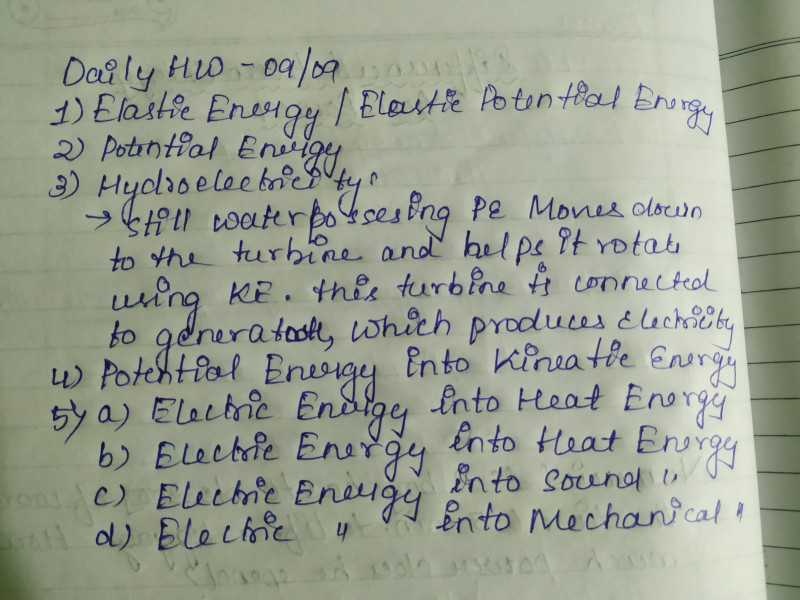 Daily HW - 09/09
1) Elastic Energy / Elastic Potential Energy
2) Potential Energy
3) Hydroelectricity:
→ Still water possesing PE Moves down
to the turbine and helps it rotate
using KE. this turbine is connected
to generator, which produces Electricity
4) Potential Energy into Kineatic Energy
5) a) Electric Energy into Heat Energy
b) Electric Energy into Heat Energy
c) Electric Energy into Sound "
d) Electric " into Mechanical "